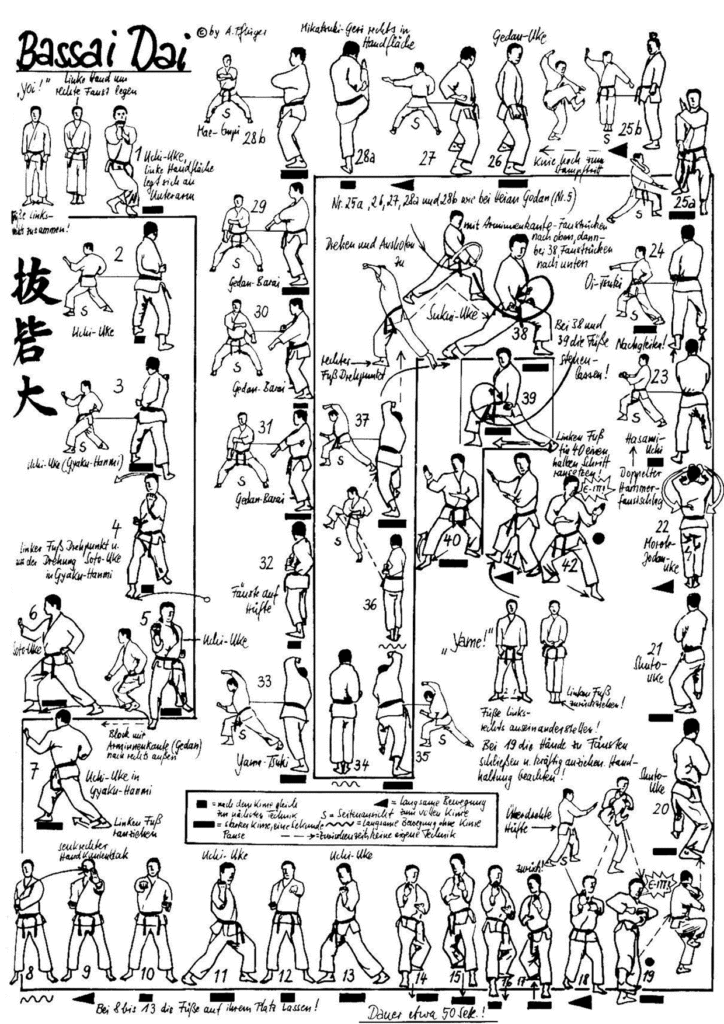 Bassai Dai
© by A. Pflüger
"Yoi!"
Linke Hand um
rechte Faust legen
1 Uchi-Uke,
linke Handfläche
legt sich an
Unterarm
2
S
Uchi-Uke
抜
砦
大
3
S
Uchi-Uke (Gyaku-Hanmi)
4
Linken Fuß Drehpunkt u.
in Gyaku-Hanmi
5
Uchi-Uke
6
Soto-Uke
Block mit
Arminnenkante (Gedan)
nach rechts außen
7
Uchi-Uke in
Gyaku-Hanmi
Linken Fuß
ranziehen
senkrechter
8
9
10
Uchi-Uke
11
12
Uchi-Uke
13
14
15
16
17
zurück!
18
19
E-ITT!
Bei 8 bis 13 die Füße auf ihrem Platz lassen!
Dauer etwa 50 Sek.!
Mikatsuki-Geri rechts in
Handfläche
S
28b
28a
S
27
Gedan-Uke
26
S
25b
Knie hoch zum
25a
Nr. 25a, 26, 27, 28a und 28b wie bei Heian Godan (Nr. 5)
29
S
Gedan-Barai
30
S
Gedan-Barai
31
S
Gedan-Barai
32
Fäuste auf
Hüfte
33
S
Yama-Tsuki
34
35
S
36
37
S
Drehen und Ausholen
zu
mit Arminnenkante-Faustrücken
nach oben, dann
bei 38, Faustrücken
nach unten
Sukui-Uke
38
rechter
Fuß Drehpunkt
Bei 38 und
39 die Füße
stehen-
lassen!
39
Linken Fuß
für 40 einen
halben Schritt
ransetzen!
40
41
42
E-ITT!
"Yame!"
Linken Fuß
zurückziehen!
Füße links-
rechts auseinanderstellen!
Bei 19 die Hände zu Fäusten
schließen u. kräftig anziehen. Hand-
haltung beachten!
24
Oi-Tsuki
S
Nachgleiten!
23
S
Hasami-
Uchi
Doppelter
Hammer-
faustschlag
22
Morote-
Jodan-
Uke
21
Shuto-
Uke
Shuto-
Uke
20
Überdrehte
Hüfte
S
= nach dem Kime gleich
zur nächsten Technik
= starkes Kime, eine Sekunde
Pause
= langsame Bewegung
S = Seitenansicht zum vollen Kime
= langsame Bewegung ohne Kime
= Zwischenzeit, keine eigene Technik